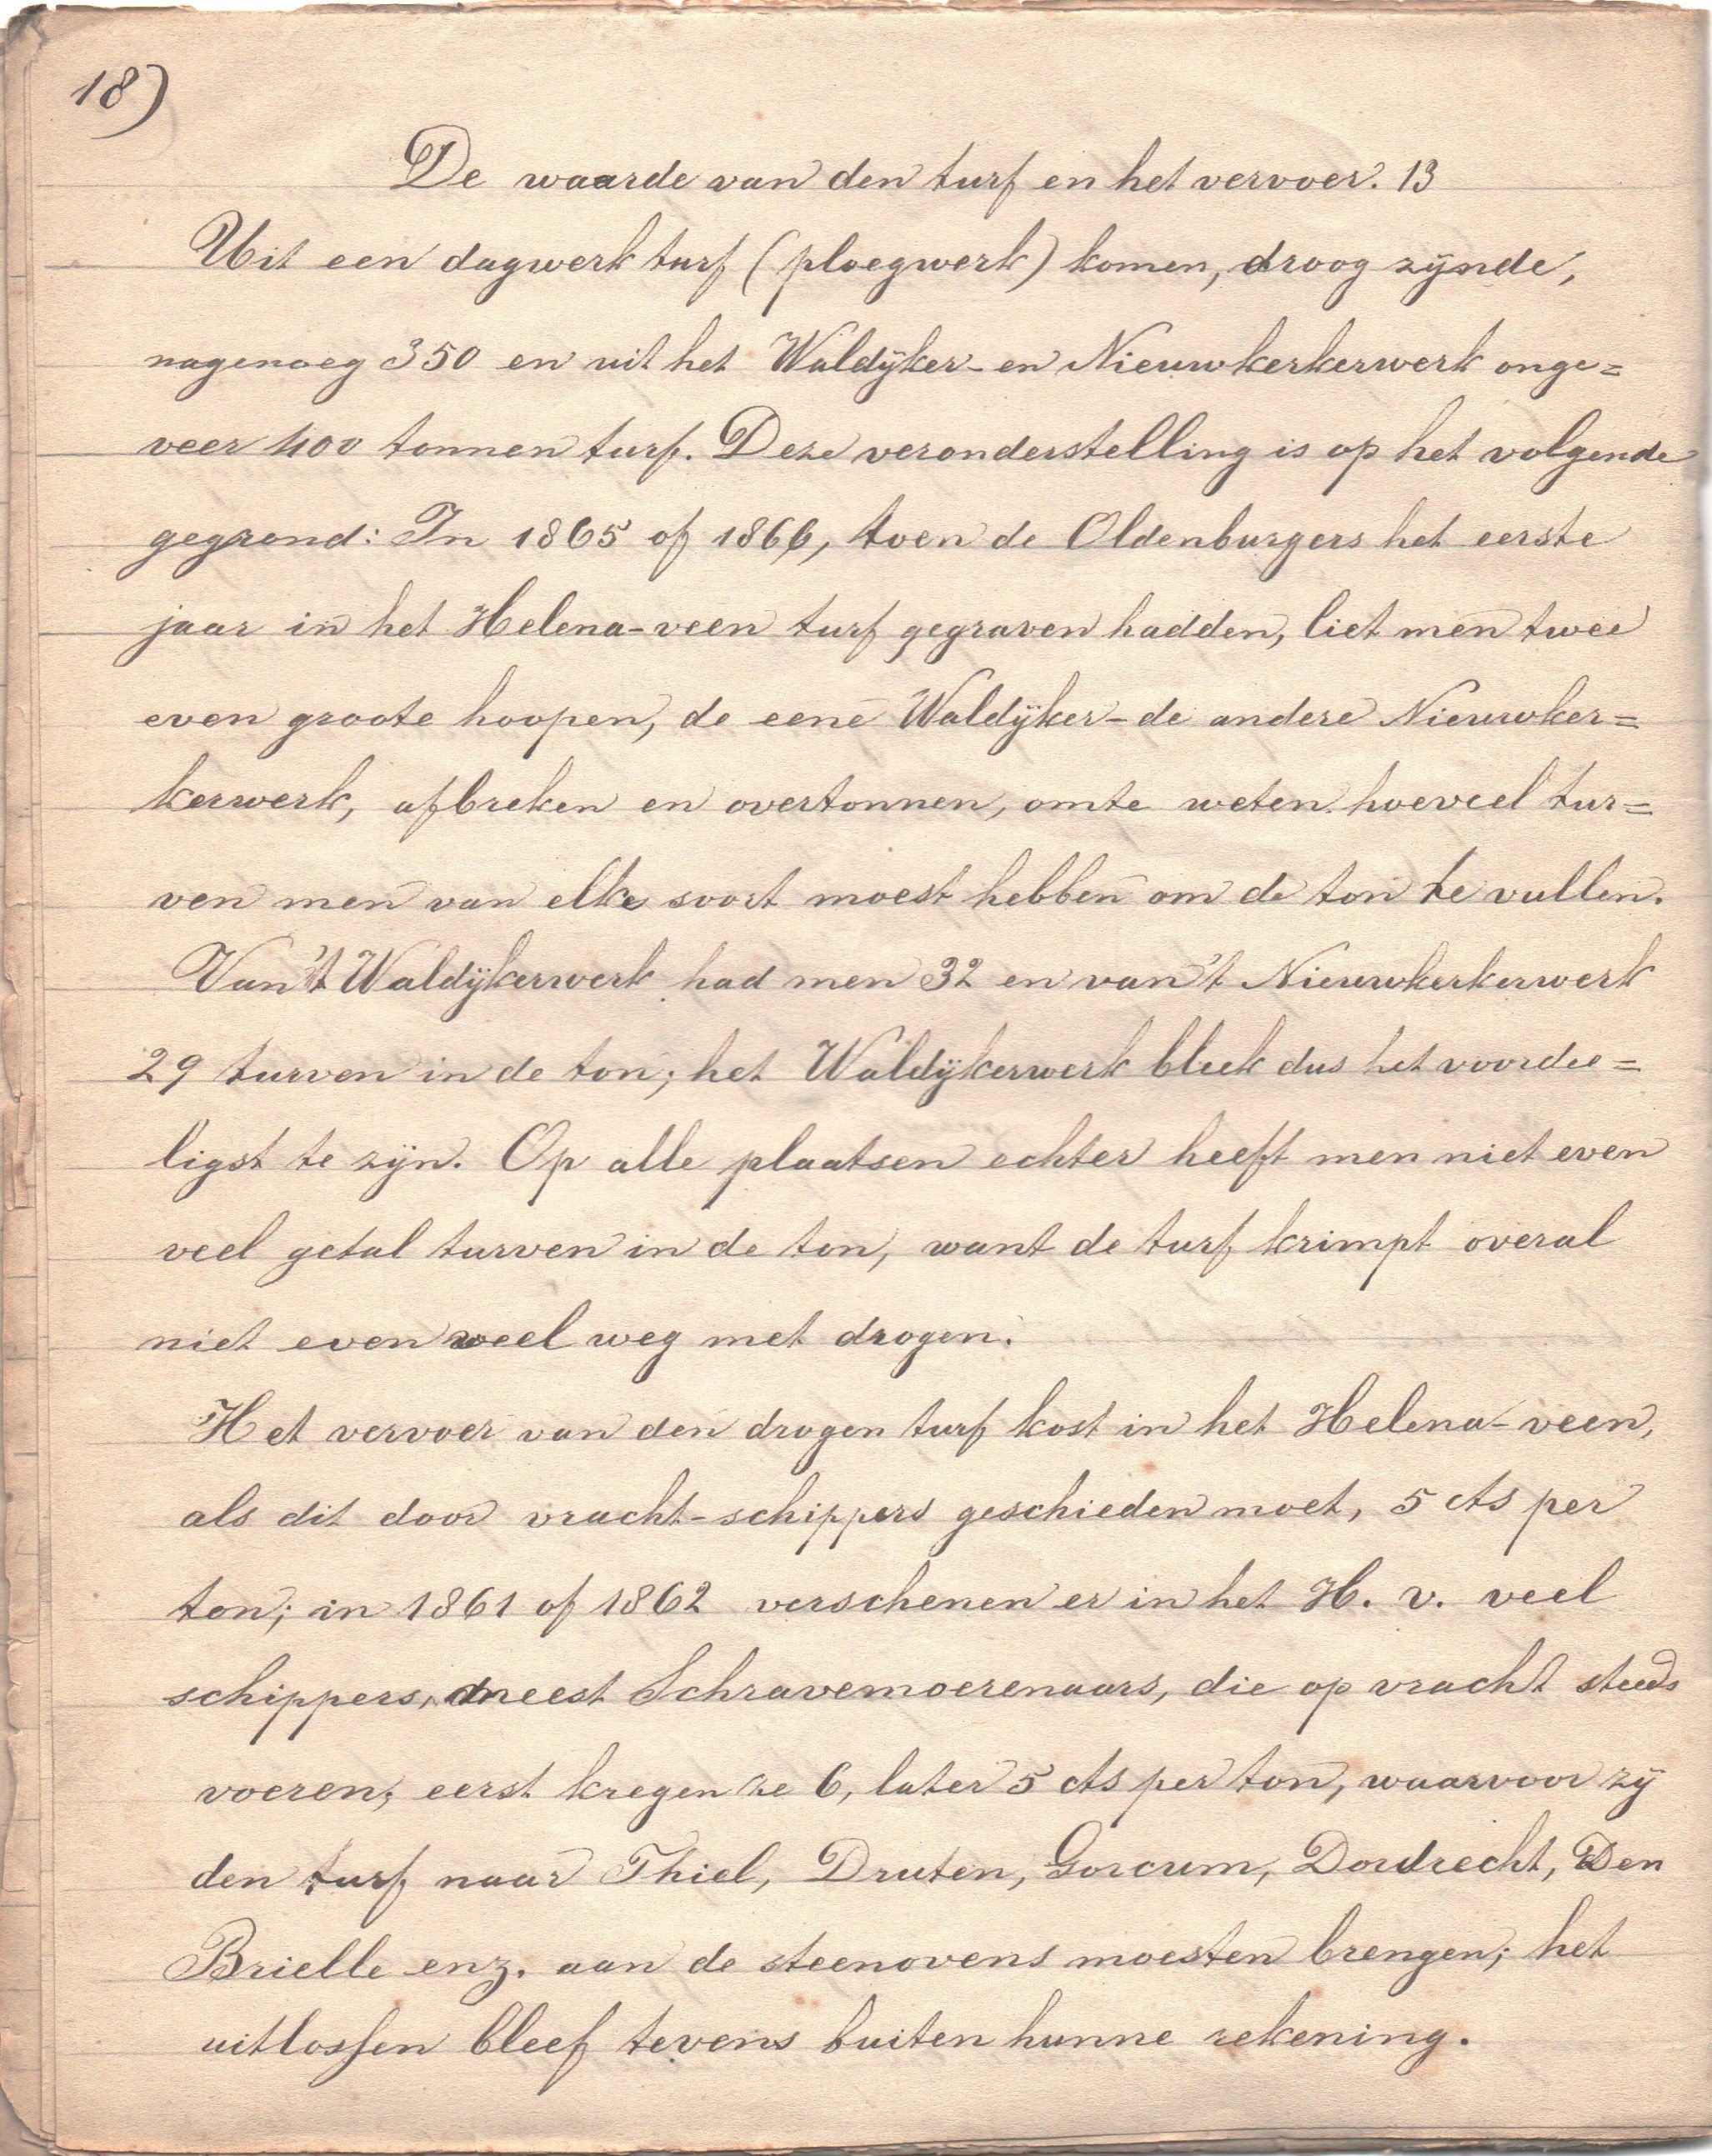 18)
De waarde van den turf en het vervoer. 13
Uit een dagwerk turf (ploegwerk) komen, droog zijnde,
nagenoeg 350 en uit het Waldijker- en Nieuwkerkerwerk onge=
veer 400 tonnen turf. Deze veronderstelling is op het volgende
gegrond: In 1865 of 1866, toen de Oldenburgers het eerste
jaar in het Helena-veen turf gegraven hadden, liet men twee
even groote hoopen, de eene Waldijker- de andere Nieuwker=
kerwerk, afbreken en overtonnen, omte weten hoeveel tur=
ven men van elke soort moest hebben om de ton te vullen.
Van't Waldijkerwerk had men 32 en van't Nieuwkerkerwerk
29 turven in de ton; het Waldijkerwerk bleek dus het voordee=
ligst te zijn. Op alle plaatsen echter heeft men niet even
veel getal turven in de ton, want de turf krimpt overal
niet even veel weg met drogen.
Het vervoer van den drogen turf kost in het Helena-veen,
als dit door vracht-schippers geschieden moet, 5 cts per
ton; in 1861 of 1862 verschenen er in het H. v. veel
schippers, meest Schravemoerenaars, die op vracht steeds
voeren; eerst kregen ze 6, later 5 cts per ton, waarvoor zij
den turf naar Thiel, Druten, Gorcum, Dordrecht, Den
Brielle enz. aan de steenovens moesten brengen; het
uitlossen bleef tevens buiten hunne rekening.